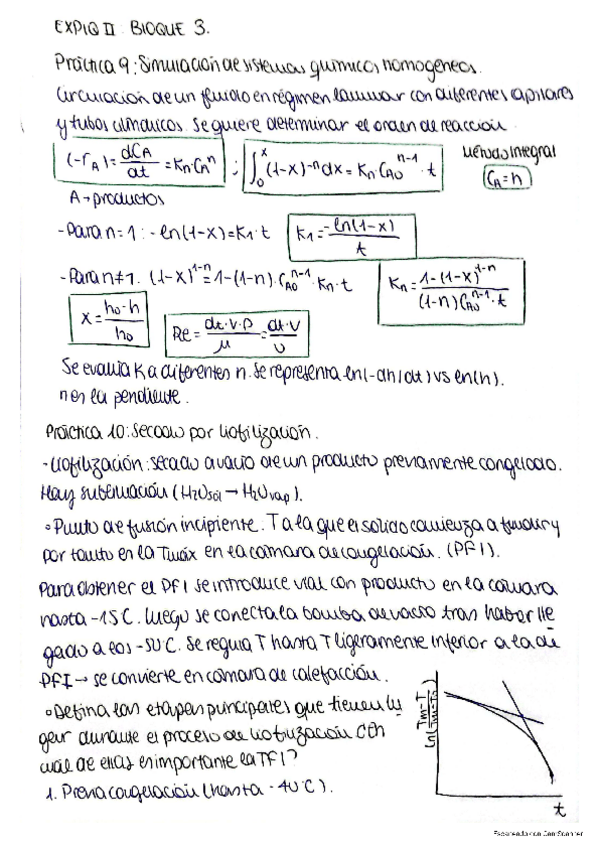 EXPIQ II: BLOQUE 3.
Práctica 9: Simulación de sistemas químicos homogéneos.
Circulación de un fluido en régimen laminar con diferentes capilares
y tubos cilíndricos. Se quiere determinar el orden de reacción.
(-rA) = dCA/dt = Kn·CA^n ; ∫₀^x (1-x)^-n dx = Kn·CA0^n-1·t
Método integral
CA = h
A → productos
- Para n=1: -ln(1-x) = K1·t K1 = -ln(1-x)/t
- Para n≠1. (1-x)^1-n = 1-(1-n)·CA0^n-1·Kn·t Kn = 1-(1-x)^1-n/(1-n)CA0^n-1·t
x = h0-h/h0 Re = dt·v·ρ/μ = dt·v/υ
Se evalúa K a diferentes n. Se representa ln(-dh/dt) vs ln(h).
n es la pendiente.
Práctica 10: Secado por liofilización.
- Liofilización: secado a vacío de un producto previamente congelado.
Hay sublimación (H2Osol → H2Ovap).
◦ Punto de fusión incipiente. T a la que el sólido comienza a fundir y
por tanto es la Tmáx en la cámara de congelación. (PFI).
Para obtener el PFI se introduce vial con producto en la cámara
hasta -15 C. Luego se conecta la bomba de vacío tras haber lle
gado a los -50°C. Se regula T hasta T ligeramente inferior a la de
PFI → se convierte en cámara de calefacción.
◦ Defina las etapas principales que tienen lu
gar durante el proceso de liofilización ¿En
cuál de ellas es importante la TFI?
1. Precongelación (hasta -40°C).
ln(Tm-T/Tm-T0)
t
Escaneado con CamScanner